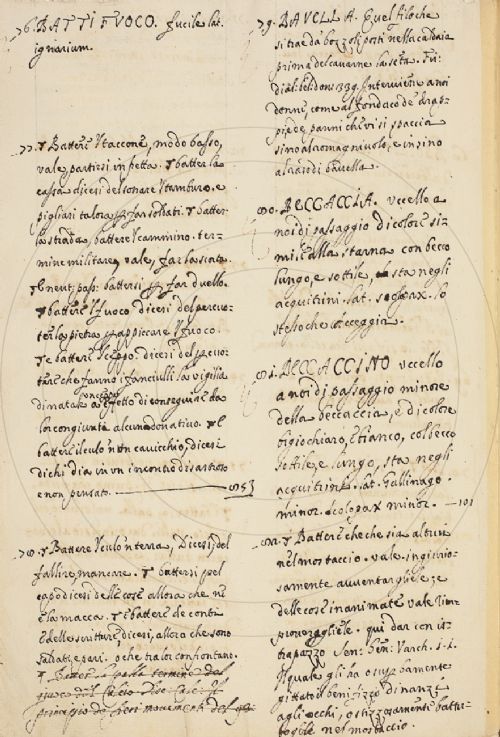 76. BATTIFUOCO. fucile lat.
igniarium.
77. ¶ Battere 'l taccone, modo basso,
vale, partirsi in fretta. ¶ batter la
cassa dicesi del sonare 'l tamburo, e
pigliasi talora per far soldati. ¶ batter
la strada, battere 'l cammino. ter-
mine militare, vale, far la scorta.
¶ neut. pass. battersi per far duello.
¶ battere 'l fuoco dicesi del percuo-
ter la pietra per appiccare 'l fuoco.
¶ e battere 'l ceppo. dicesi del percuo-
tere che fanno i fanciulli la vigilia
di natale a effetto di conseguire da
lor congiunti alcun donativo. ¶ e
battere il culo 'n un cavicchio, dicesi
di chi dia in un incontro disastroso
e non pensato.
78. ¶ Battere 'l culo 'n terra, Dicesi, del
fallire, mancare. ¶ battersi pel
capo dicesi delle cose allora che n'
è la macca. ¶ e battere de conti
e delle scritture, dicesi, allora che sono
saldati e pari. o che tra lor confrontano.
79. BAVELLA. Quel filo che
si trae da' bozzoli posti nella caldaia
prima del cavarne la seta.
donne, come al fondaco de' drap-
pi e de' panni chi vi si spaccia
sino al romagnuolo, e insino
al cardi bavella.
80. BECCACCIA. uccello a
noi di passaggio di colore si-
mile alla starna con becco
lungo, e sottile, sta negli
acquitrini. lat. scolopax. lo
stesso che acceggia.
81. BECCACCINO uccello
a noi di passaggio minore
della beccaccia, e di colore
bigio chiaro, e bianco, col becco
sottile, e lungo, sta negli
acquitrini. lat. Gallinago.
minor. scolopax minor. — 101
82. ¶ Battere che che sia altrui
nel mostaccio. vale ingiurio-
samente avventargliele, e
delle cose inanimate vale rim-
proverargliele. qui dar con is-
trapazzo Sen: Ben: Varch. 1.1.
Il quale gli ha o superbamente
gittato il benifizio dinanzi
agli occhi, o stizzosamente battu-
togliele nel mostaccio.